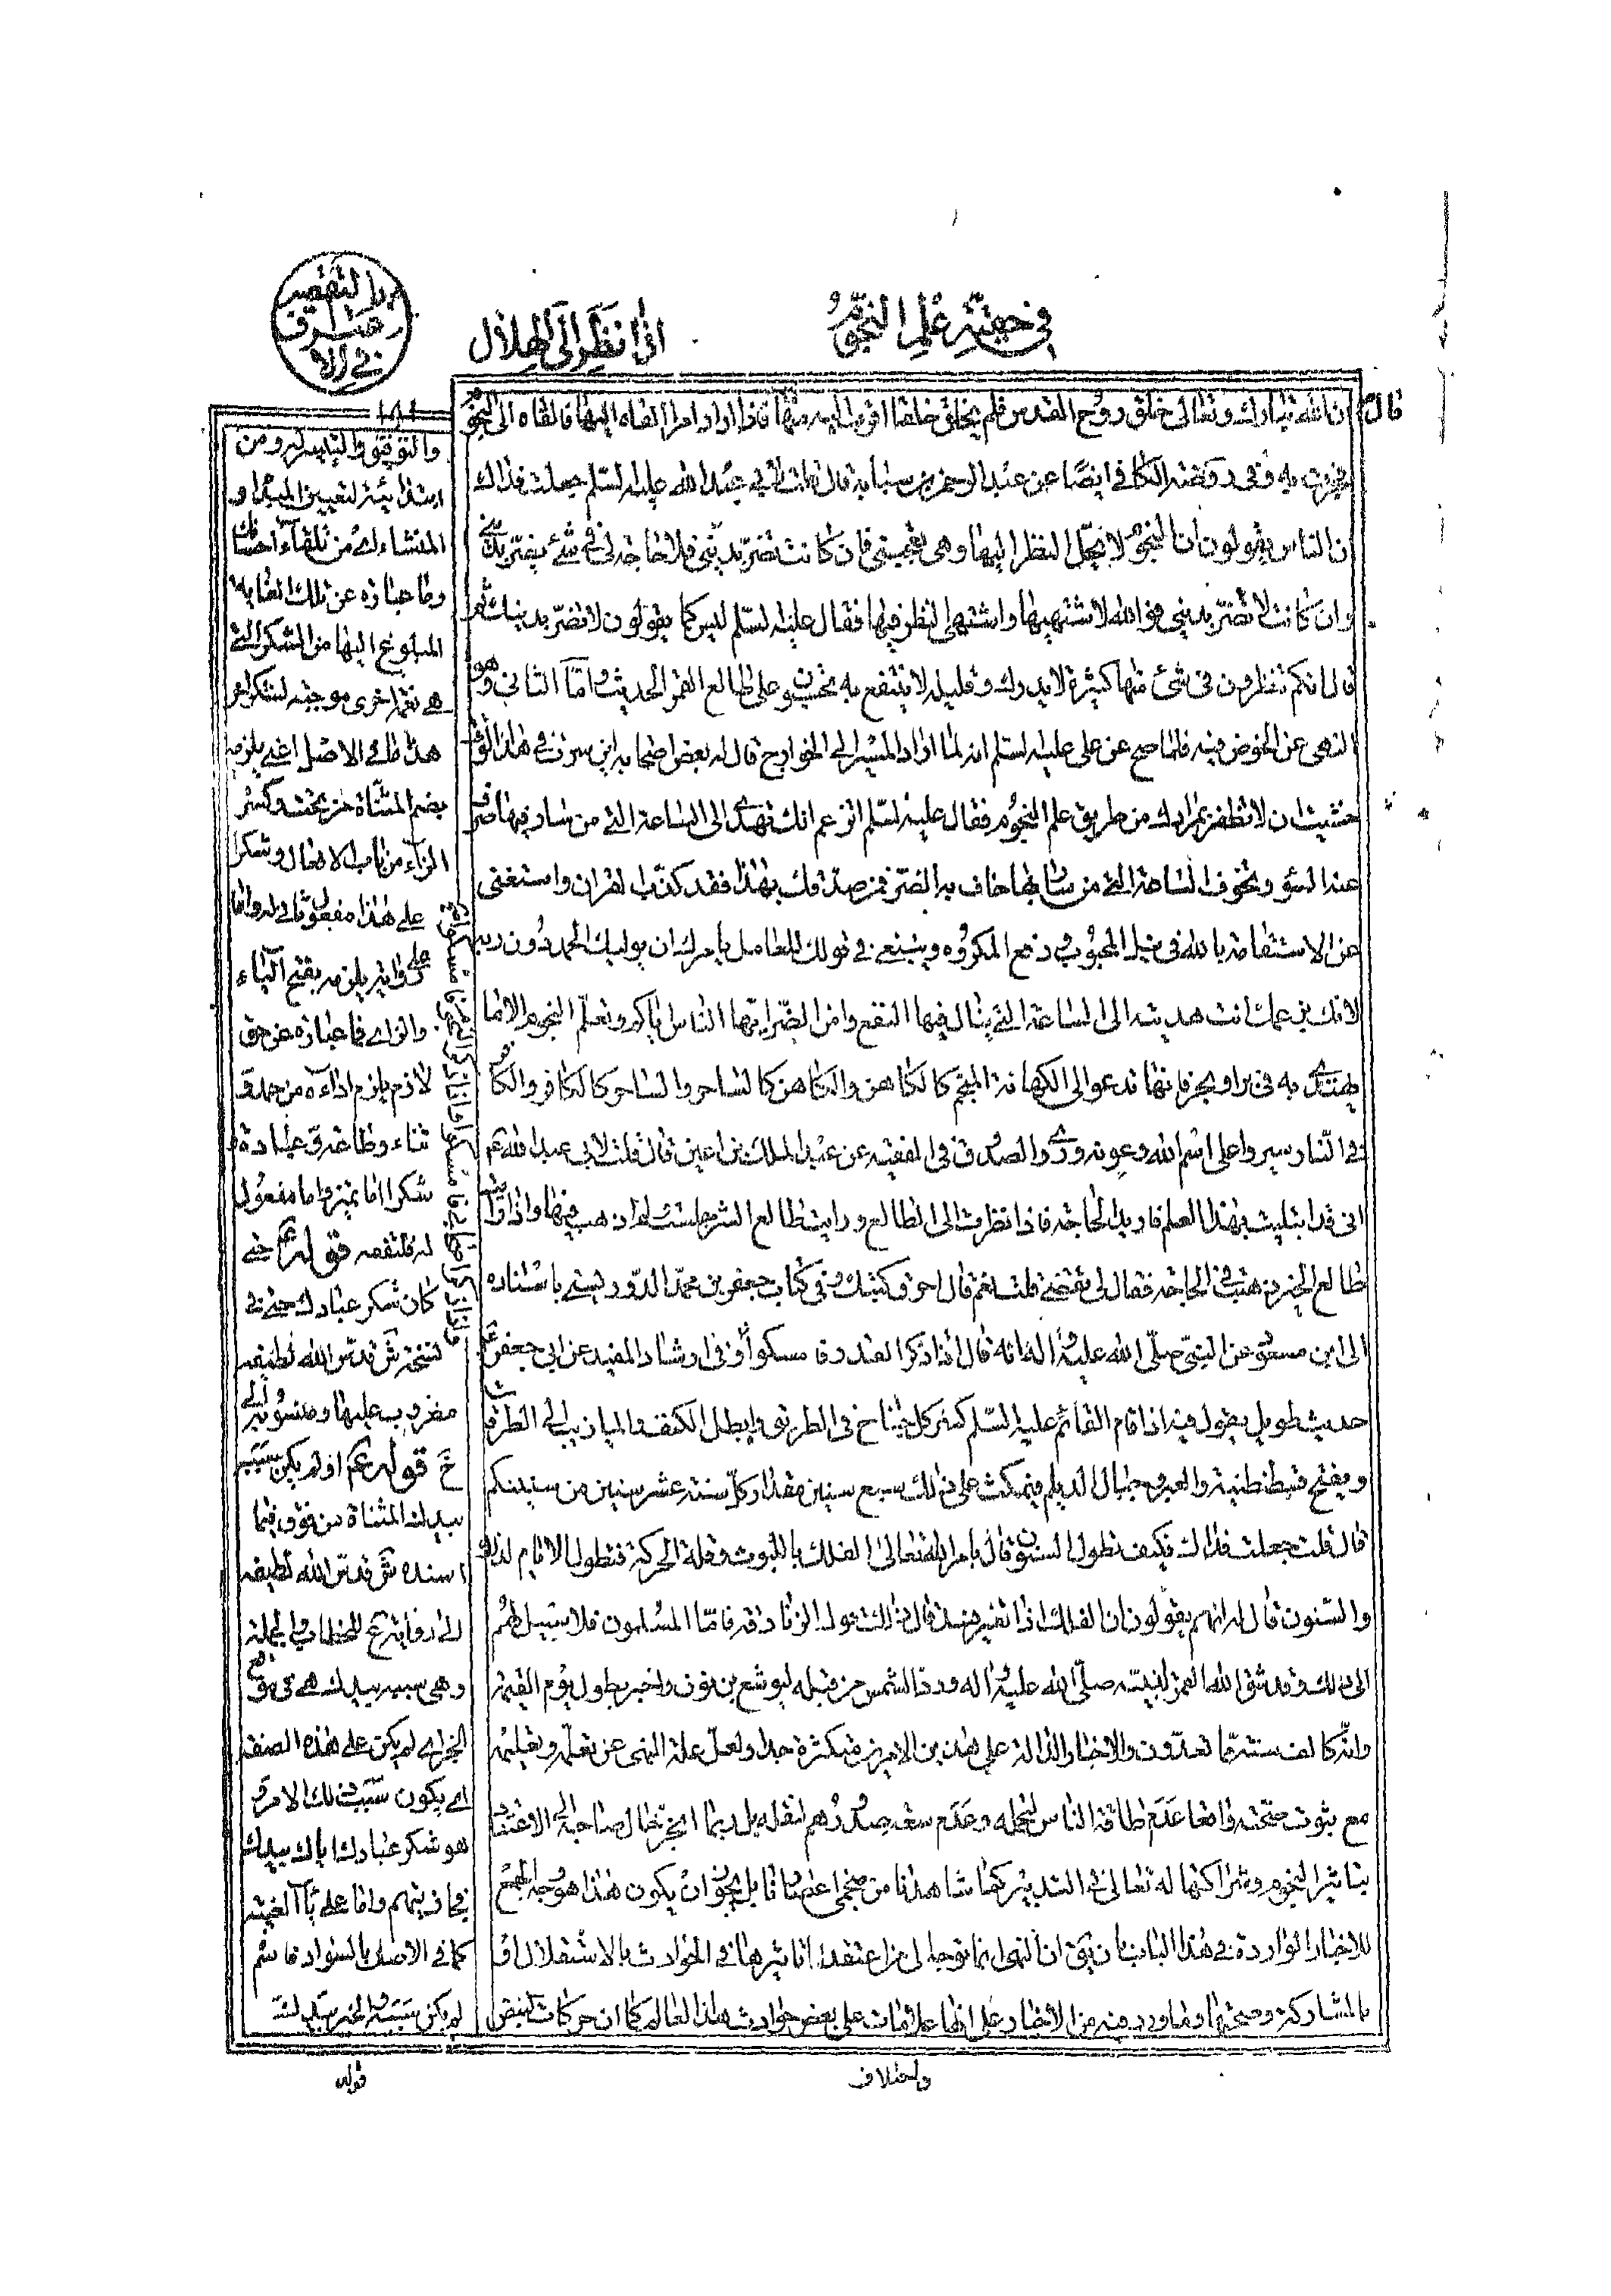 في حقيّة علم النجوم
اذا نظر الى الهلال
قال ان الله تبارك وتعالى خلق روح القدس فلم يخلق خلقا اقرب اليه منها فاذا اراد امرا القاه اليها فالقاه الى النجوم
فجرت به وفي روضة الكافي ايضا عن عبد الرحمن بن سيابة قال قلت لابي عبد الله عليه السلم جعلت فداك
ان الناس يقولون ان النجوم لا يحل النظر اليها وهي تعجبني فان كانت تضر بديني فلا حاجة لي في شئ يضر بديني
وان كانت لا تضر بديني فوالله لاشتهيها واشتهي النظر فيها فقال عليه السلم ليس كما يقولون لا تضر بدينك ثم
قال انكم تنظرون في شئ منها كثيره لا يدرك وقليله لا ينتفع به تحسبون على طالع القمر الحديث واما الثاني وهو
النهي عن الخوض فيه فلما صح عن علي عليه السلم انه لما اراد المسير الى الخوارج قال له بعض اصحابه ان سرت في هذا الوقت
خشيت ان لا تظفر بمرادك من طريق علم النجوم فقال عليه السلم اتزعم انك تهدي الى الساعة التي من سار فيها صرف
عنه السوء وتخوف الساعة التي من سار بها حاف به الضر فمن صدقك بهذا فقد كذب القران واستغنى
عن الاستعانة بالله في نيل المحبوب ودفع المكروه وينبغي في قولك للعامل بامرك ان يوليك الحمد دون ربه
لانك بزعمك انت هديته الى الساعة التي ينال فيها النفع وامن الضر ايها الناس اياكم وتعلم النجوم الا ما
يهتدى به في بر او بحر فانها تدعو الى الكهانة المنجم كالكاهن والكاهن كالساحر والساحر كالكافر والكافر
في النار سيروا على اسم الله وعونه وروى الصدوق في الفقيه عن عبد الملك بن اعين قال قلت لابي عبد الله ع
اني قد ابتليت بهذا العلم فاريد الحاجة فاذا نظرت الى الطالع ورايت طالع الشر جلست ولم اذهب فيها واذا رايت
طالع الخير ذهبت في الحاجة فقال لي تقضي قلت نعم قال احرق كتبك وفي كتاب جعفر بن محمد الدوريستي باسناده
الى ابن مسعود عن النبي صلى الله عليه واله انه قال اذا ذكر القدر فامسكوا وفي ارشاد المفيد عن ابي جعفر ع
حديث طويل يقول فيه اذا قام القائم عليه السلم كسر كل جناح في الطريق وابطل الكنف والميازيب الى الطرقات
ويفتح قسطنطنية والصين وجبال الديلم فيمكث على ذلك سبع سنين مقدار كل سنة عشر سنين من سنينكم
قال قلت جعلت فداك فكيف تطول السنون قال يامر الله تعالى الفلك باللبوث وقلة الحركة فتطول الايام لذلك
والسنون قال له انهم يقولون ان الفلك اذا تغير فسد قال ذلك قول الزنادقة فاما المسلمون فلا سبيل لهم
الى ذلك وقد شق الله القمر لنبيه صلى الله عليه واله ورد الشمس من قبله ليوشع بن نون واخبر بطول يوم القيمة
وانه كالف سنة مما تعدون والاخبار الدالة على هذين الامرين متكثرة جدا ولعل علة النهي عن تعلمه وتعليمه
مع ثبوت صحته واقعا عدم طاقة الناس لتحمله وعدم سعة صدرهم لنقله بل ربما انجر بحال صاحبه الى الاعتقاد
بتاثير النجوم وشراكتها له تعالى في التدبير كما شاهدنا من منجمي اعصارنا بل يجوز ان يكون هذا هو وجه الجمع
للاخبار الواردة في هذا الباب بان يق ان النهي انما توجه الى من اعتقد تاثيرها في الحوادث بالاستقلال او
بالمشاركة وصحتها وما ورد فيه من الاخبار على انها علامات على بعض حوادث هذا العالم كما ان حركات النبض
واختلاف
والتوفيق والتيسير له ومن
ابتدائية لتعيين المبدا و
المنشاء اي من تلقاء احسانك
المبلوغ اليها من الشكر التي
هي نعمة اخرى موجبة لشكر اخر
بضم المثناة من تحت وكسر
الزاء من باب الافعال وشكرا
على هذا مفعول ثان له واما
يلزمه بفتح الياء
والزاي فاعبارة عن حق
لازم يلزم اداءه من حمد و
ثناء وطاعة وعبادة و
شكرا اما تميز واما مفعول
له فليفقه قوله ع حتى
كان شكر عبادك
لنسخة ش قدس الله لطيفه
مضروب عليها ومنسوبة الى
خ قوله ع او لم يكن سببه
بيدك المثناة من فوق فيما
اسنده ش قدس الله لطيفه
الى رواية ع للخطاب والجملة
وهي سببه بيدك هي في موضع
الخبر اي لم يكن على هذه الصفة
اي يكون سبب ذلك الامر و
هو شكر عبادك اياك بيدك
فجازيتهم واما على ياء الغيبة
كما في الاصل بالسواد فاسم
لم يكن سببه والخبر بيدك
قوله